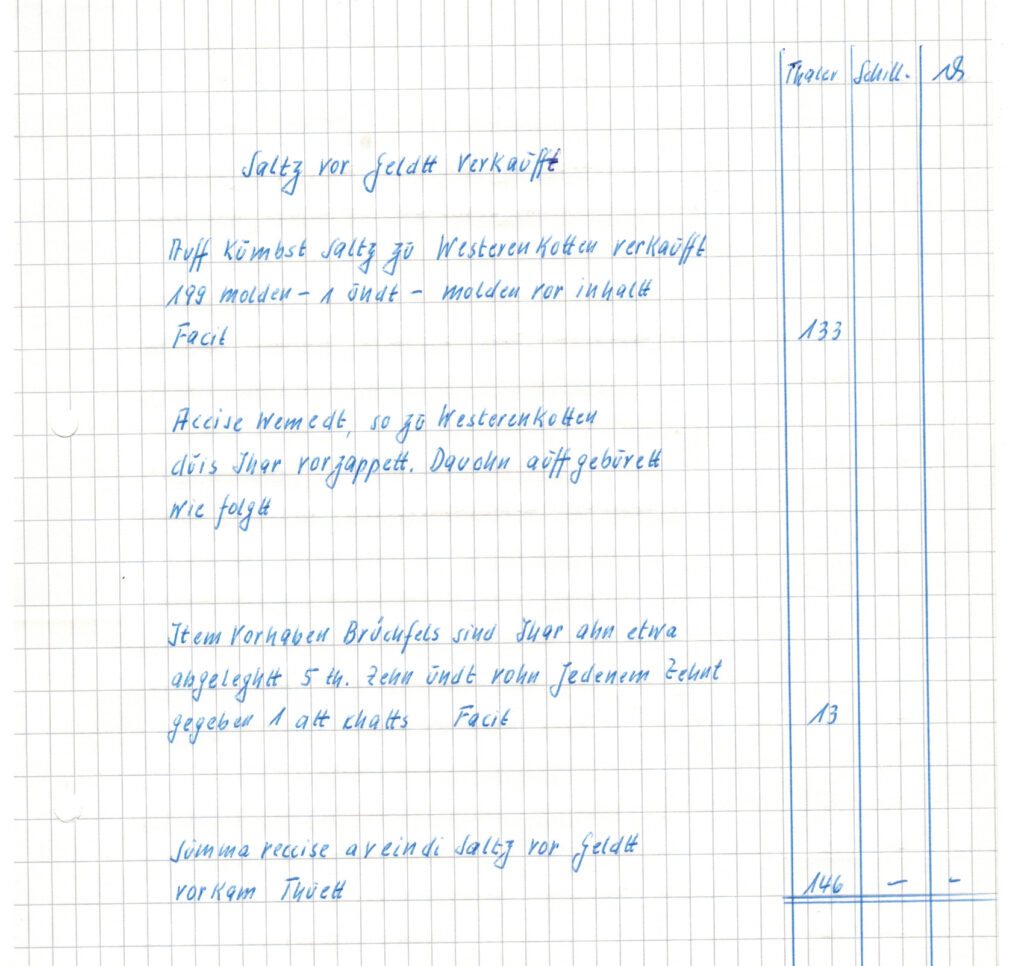 Thaler Schill. ₰
Saltz vor Geldtt verkaufft
Auff Kümbst Saltz zu Westeren Kotten verkaufft
199 molden - 1 undt - molden vor inhaltt
Facit 133
Accise Wemedt, so zu Westerenkotten
duis Jhar vorzappett. Davohn auffgebürett
wie folgtt
Item Vorhaben Brüchfels sind Jhar ahn etwa
abgeleghtt 5 th. Zehn undt vohn Jedenem Zehnt
gegeben 1 att khatts Facit 13
Summa reccise aveindi Saltz vor Geldtt
vorkam Thuett 146 - -